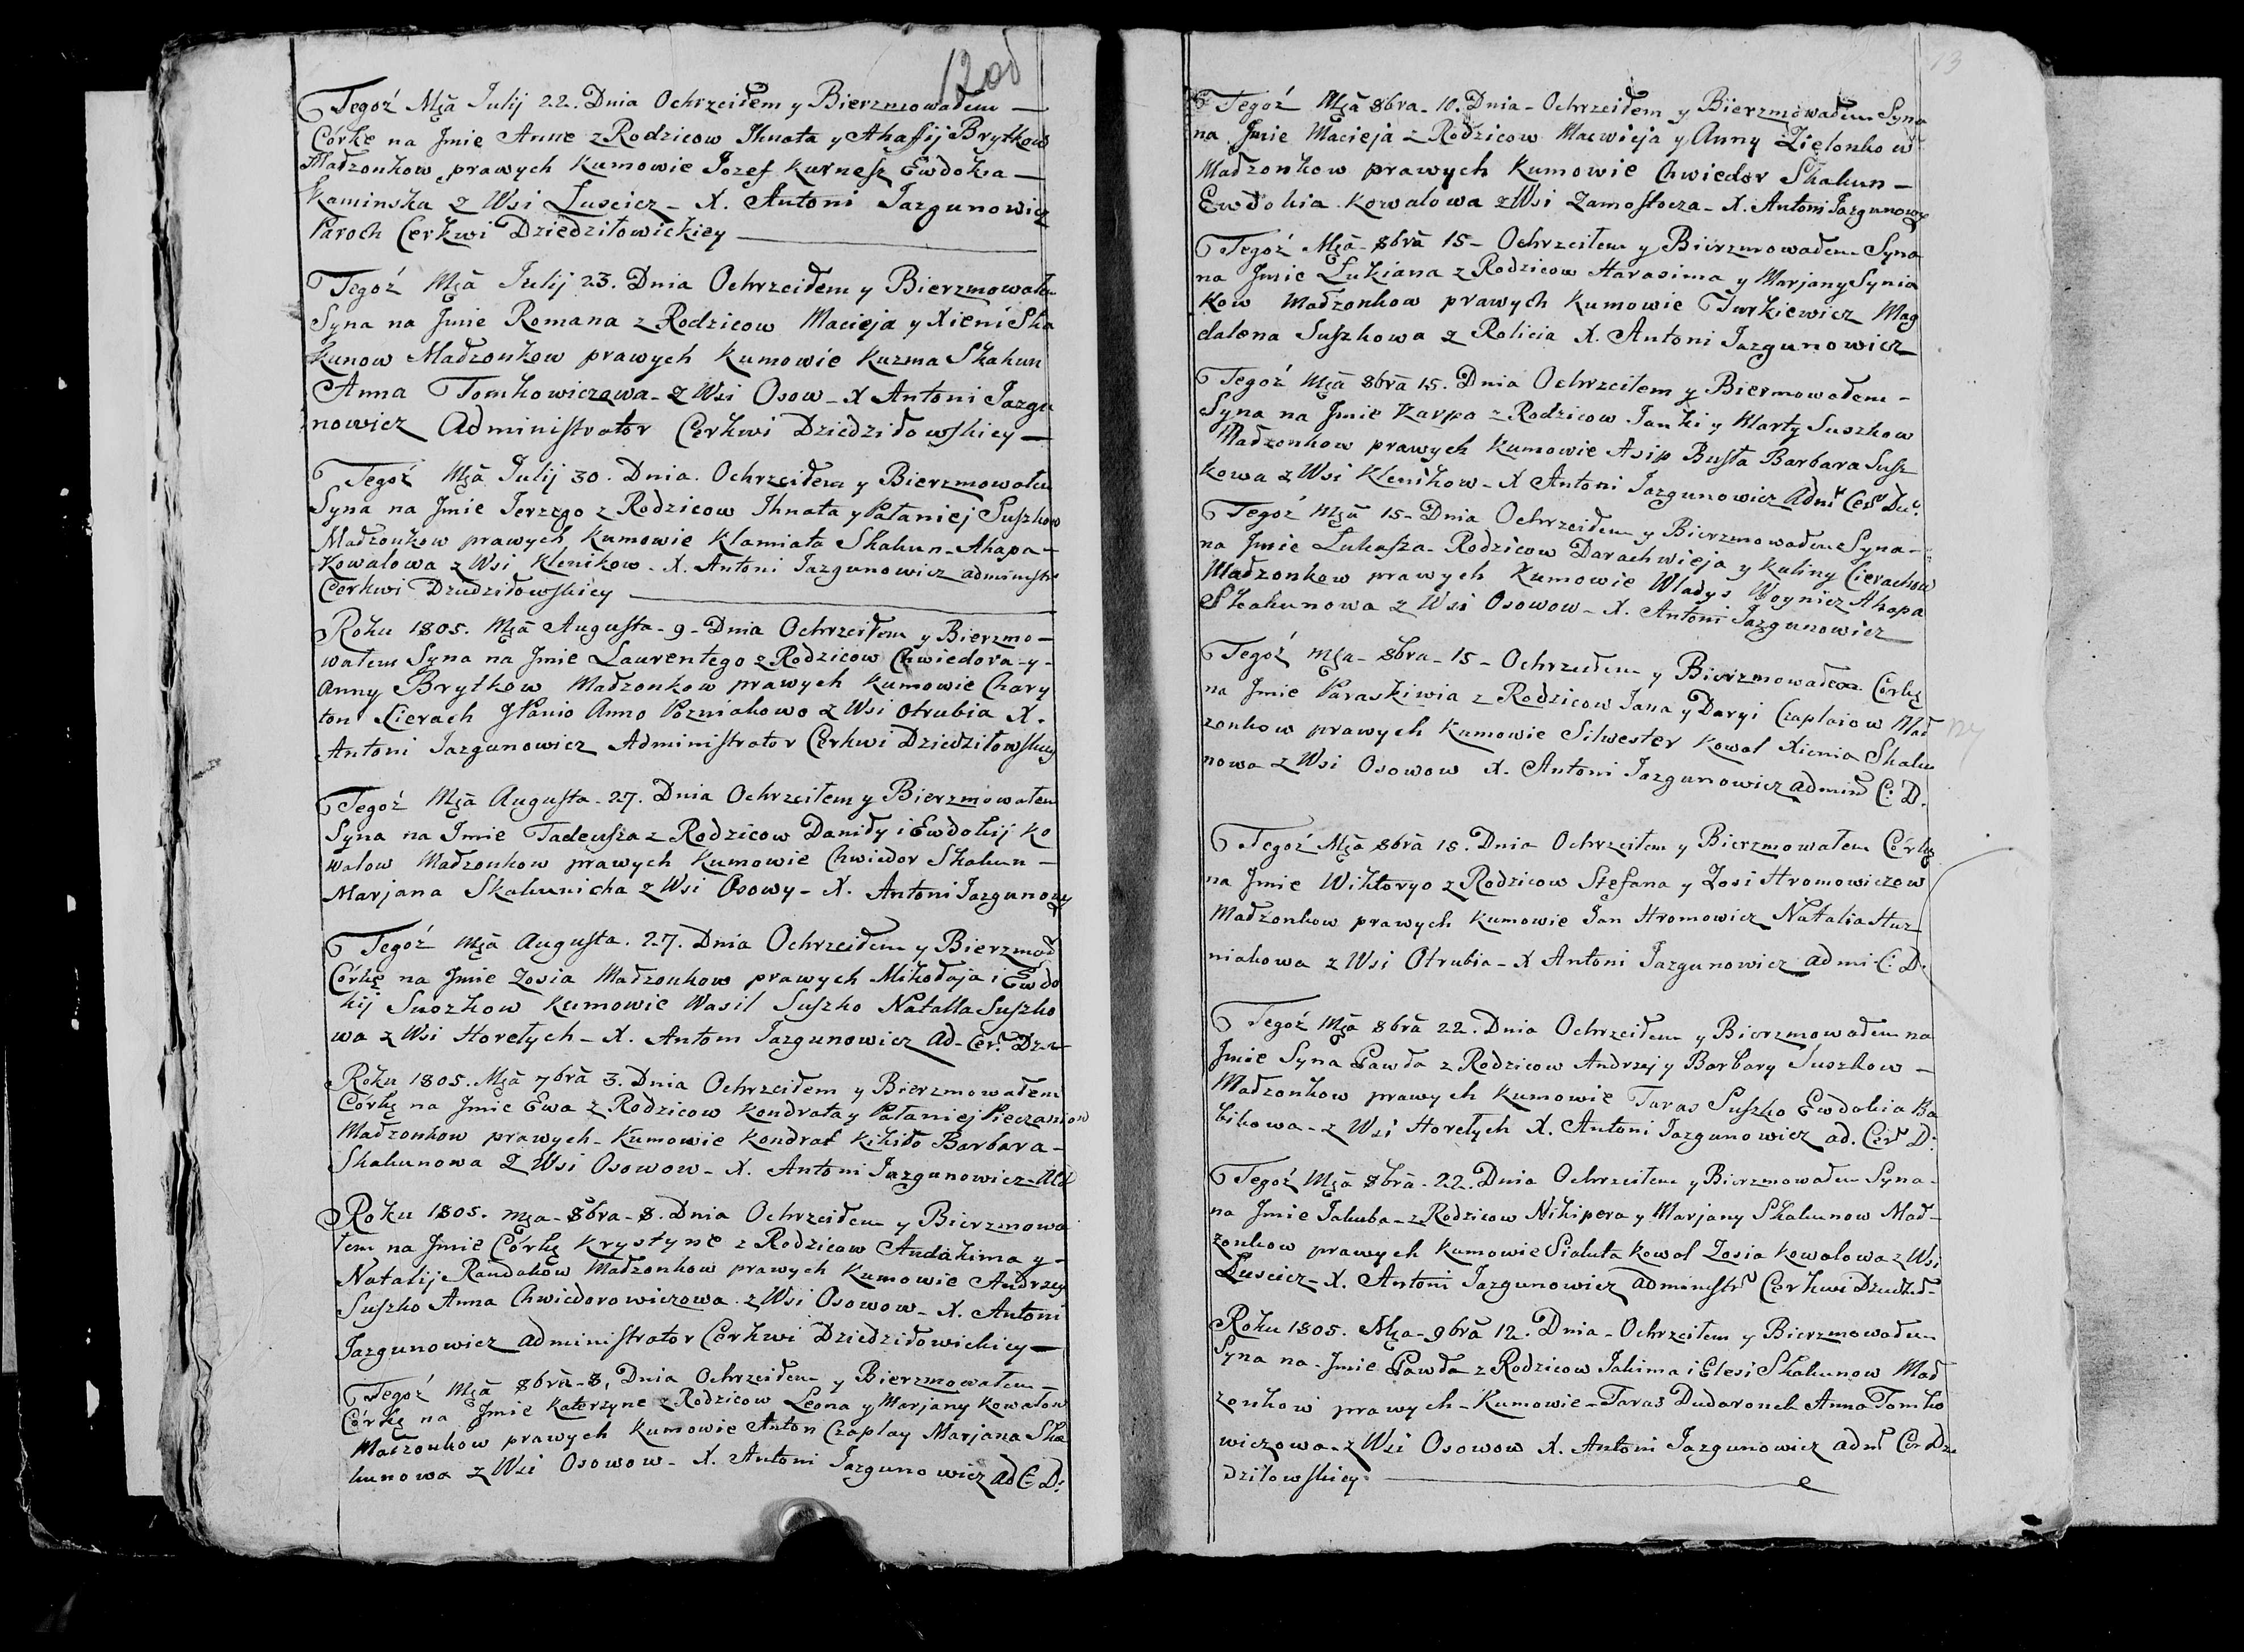 12 об
Tegoż Mca Julij 22. Dnia Ochrzciłem y Bierzmowałem —
Córke na Jmie Anne z Rodzicow Jhnata y Ahaffij Brytkow
Małzonkow prawych Kumowie Jozef Kurnesz Ewdokia —
Kaminska z Wsi Luscicz – X. Antoni Jazgunowicz
Paroch Cerkwi Dziedziłowickiey
Tegoż Mca Julij 23. Dnia Ochrzciłem y Bierzmowałem
Syna na Jmie Romana z Rodzicow Macieja y Xieni Ska
kunow Małzonkow prawych Kumowie Kuzma Skakun
Anna Tomkowiczowa – z Wsi Osow – X Antoni Jazgu
nowicz Administrator Cerkwi Dziedziłowskiey —
Tegoż Mca Julij 30. Dnia. Ochrzciłem y Bierzmowałem
Syna na Jmie Jerzego z Rodzicow Jhnata y Pałaniej Suszkow
Małzonkow prawych Kumowie Klamiata Skakun – Ahapa –
Kowalowa z Wsi Klenikow – X. Antoni Jazgunowicz administr
Cerkwi Dziedziłowskiey
Roku 1805. Mca Augusta – 9 – Dnia Ochrzciłem y Bierzmo –
wałem Syna na Jmie Laurentego z Rodzicow Chwiedora – y –
Anny Brytkow Małzonkow prawych Kumowie Chary
ton Cierach JPanio Anno Pozniakowo z Wsi Otrubia X.
Antoni Jazgunowicz Administrator Cerkwi Dziedziłowskiey
Tegoż Mca Augusta – 27. Dnia Ochrzciłem y Bierzmowałem
Syna na Jmie Tadeusza z Rodzicow Daniły i Ewdokij Ko
walow Małzonkow prawych Kumowie Chwiedor Skakun –
Marjana Skakunicha z Wsi Osowy – X. Antoni Jazgunowy
Tegoż Mca Augusta. 27. Dnia Ochrzciłem y Bierzmoł
Córkę na Jmie Zosia Małzonkow prawych Mikołaja i Ewdo
kij Suszkow Kumowie Wasil Suszko Natalla Suszko
wa z Wsi Horełych – X. Antom Jazgunowicz Ad – Cer. Dz –
Roku 1805. Mca 7bra 3. Dnia Ochrzciłem y Bierzmowałem
Córkę na Jmie Ewa z Rodzicow Kondrata y Pałaniej Pieczaniow
Małzonkow prawych – Kumowie Kondrat Kikiło Barbara –
Skakunowa z Wsi Osowow – X. Antoni Jazgunowicz – Ad
Roku 1805. Mca – 8bra – 8. Dnia Ochrzciłem y Bierzmowa
łem na Jmie Córkę Krystyne z Rodzicow Audakima y –
Natalij Randakow Małzonkow prawych Kumowie Andrzey
Suszko Anna Chwiedorowiczowa z Wsi Osowow – X. Antoni
Jazgunowicz administrator Cerkwi Dziedziłowickiey —
Tegoż Mca 8bra – 8, Dnia Ochrzciłem y Bierzmowałem –
Córkę na Jmie Katerzyne z Rodzicow Leona y Marjany Kowalow
Małzonkow prawych Kumowie Anton Czaplay Marjana Ska
kunowa z Wsi Osowow – X. Antoni Jazgunowicz Ad C D:
13
Tegoż Mca 8bra – 10. Dnia – Ochrzciłem y Bierzmowałem Syna
na Jmie Macieja z Rodzicow Macwieja y Anny Zielonkow
Małzonkow prawych Kumowie Chwiedor Skakun –
Ewdokia Kowalowa z Wsi Zamostocza – X. Antoni Jazgunowy
Tegoż Mca – 8bra 15 – Ochrzciłem y Bierzmowałem Syna
na Jmie Łukiana z Rodzicow Harasima y Marjany Synia
kow Małzonkow prawych Kumowie Turkiewicz Mag
dalena Suszkowa z Rolicia X. Antoni Jazgunowicz
Tegoż Mca 8bra 15. Dnia Ochrzciłem y Biermowałem –
Syna na Jmie Karpa z Rodzicow Janki y Marty Suszkow
Małzonkow prawych Kumowie Asip Busła Barbara Susz
kowa z Wsi Klenikow – X Antoni Jazgunowicz Adm Cer Dz.
Tegoż Mca 15 – Dnia Ochrzciłem y Bierzmowałem Syna –
na Jmie Łukasza – Rodzicow Darachwieja y Kuliny Cierachow
Małzonkow prawych Kumowie Władys Woynicz Ahapa
Skakunowa z Wsi Osowow – X. Antoni Jazgunowicz
Tegoż Mca – 8bra – 15 – Ochrzciłem y Bierzmowałem Córkę
na Jmie Paraskiwia z Rodzicow Jana y Daryi Czaplaiow Mał
zonkow prawych Kumowie Silwester Kowal Xienia Skaku
nowa z Wsi Osowow X. Antoni Jazgunowicz admin C: D.
Tegoż Mca 8bra 15. Dnia Ochrzciłem y Bierzmowałem Córkę
na Jmie Wiktoryo z Rodzicow Stefana y Zosi Hromowiczow
Małzonkow prawych Kumowie Jan Hromowicz Natalia Huz
niakowa z Wsi Otrubia – X Antoni Jazgunowicz admi C: D.
Tegoż Mca 8bra 22. Dnia Ochrzciłem y Bierzmowałem na
Jmie Syna Pawła z Rodzicow Andrzej y Barbary Suszkow –
Małzonkow prawych Kumowie Taras Suszko Ewdokia Ba
bikowa – z Wsi Horełych X. Antoni Jazgunowicz ad. Cer D:
Tegoż Mca 8bra – 22. Dnia Ochrzciłem y Bierzmowałem Syna –
na Jmie Jakuba – z Rodzicow Nikipera y Marjany Skakunow Mał –
zonkow prawych Kumowie Sialuta Kowal Zosia Kowalowa z Wsi
Luscicz – X. Antoni Jazgunowicz administr Cerkwi Dziedził –
Roku 1805. Mca – 9bra 12. Dnia – Ochrzciłem y Bierzmowałem
Syna na – Jmie Pawła z Rodzicow Jakima i Elesi Skakunow Mał
zonkow prawych – Kumowie – Taras Dudaronek Anna Tomko
wiczowa – z Wsi Osowow X. Antoni Jazgunowicz adm Cer Dze
dziłowskiey